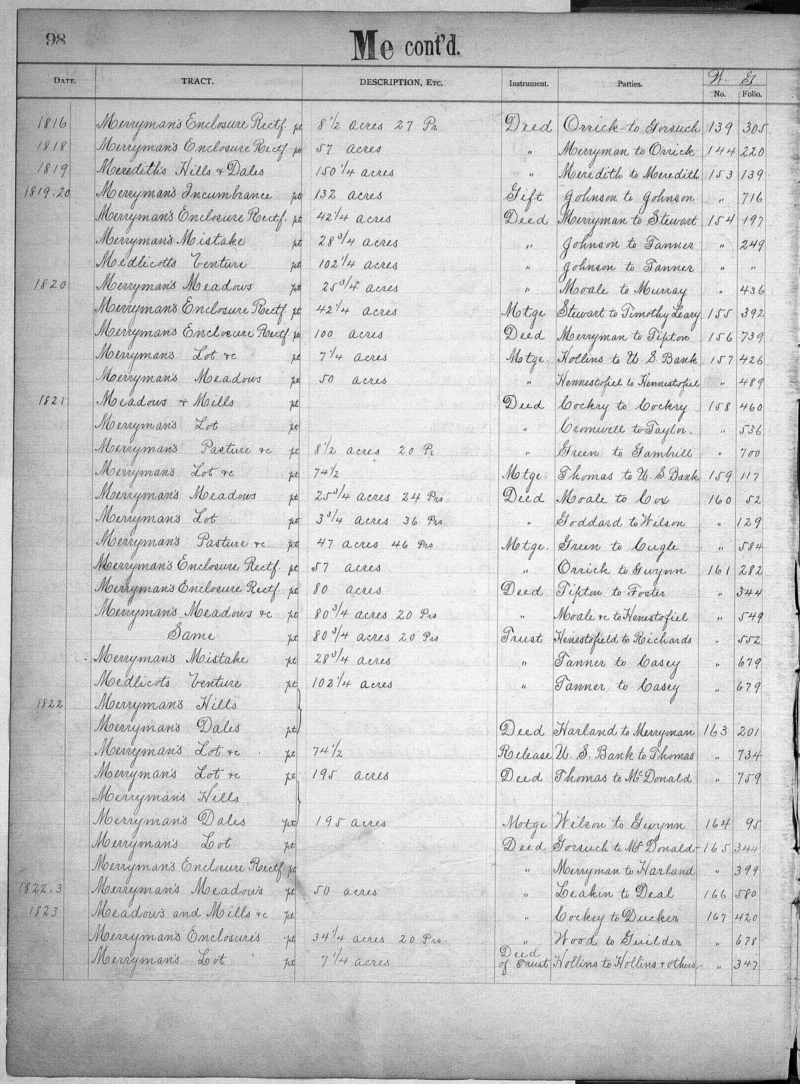 98
Me cont'd.
DATE. TRACT. DESCRIPTION, ETC. Instrument. Parties. W. G
No. Folio.
1816 Merryman's Enclosure Rectf. pt 8 1/2 acres 27 Pr Deed Orrick to Gorsuch 139 305
1818 Merryman's Enclosure Rectf. pt 57 acres " Merryman to Orrick 144 220
1819 Merediths Hills & Dales 150 1/4 acres " Meredith to Meredith 153 139
1819.20 Merryman's Incumbrance pt 132 acres Gift Johnson to Johnson " 716
Merryman's Enclosure Rectf. pt 42 1/4 acres Deed Merryman to Stewart 154 197
Merryman's Mistake pt 28 3/4 acres " Johnson to Tanner " 249
Medlicotts Venture pt 102 1/4 acres " Johnson to Tanner " "
1820 Merryman's Meadows pt 25 3/4 acres " Moale to Murray " 436
Merryman's Enclosure Rectf. pt 42 1/4 acres Mtge Stewart to Timothy Leary 155 392
Merryman's Enclosure Rectf. pt 100 acres Deed Merryman to Tipton 156 739
Merryman's Lot &c pt 7 1/4 acres Mtge. Hollins to U S Bank 157 426
Merryman's Meadows pt 50 acres " Hennestofiel to Hennestofiel " 489
1821 Meadows & Mills pt Deed Cockry to Cockry 158 460
Merryman's Lot pt " Cromwell to Taylor. " 536
Merryman's Pasture &c pt 8 1/2 acres 20 Pr " Green to Gambrill " 700
Merryman's Lot &c pt 74 1/2 Mtge. Thomas to U. S Bank 159 117
Merryman's Meadows pt 25 3/4 acres 24 Prs Deed Moale to Cox 160 52
Merryman's Lot pt 3 3/4 acres 36 Prs " Goddard to Wilson " 129
Merryman's Pasture &c. pt 47 acres 46 Prs Mtge. Green to Cugle " 584
Merryman's Enclosure Rectf. pt 57 acres " Orrick to Gwynn 161 282
Merryman's Enclosure Rectf. pt 80 acres Deed Tipton to Foster " 344
Merryman's Meadows &c pt 80 3/4 acres 20 Prs " Moale &c to Henestofiel " 549
Same pt 80 3/4 acres 20 Prs Trust Henestofield to Richards " 552
Merryman's Mistake pt 28 3/4 acres " Tanner to Casey " 679
Medlicots Venture pt 102 1/4 acres " Tanner to Casey " 679
1822 Merryman's Hills
Merryman's Dales pt Deed Harland to Merryman 163 201
Merryman's Lot &c pt 74 1/2 Release U. S. Bank to Thomas " 734
Merryman's Lot &c pt 195 acres Deed Thomas to McDonald " 759
Merryman's Hills
Merryman's Dales pt 195 acres Motge Wilson to Gwynn 164 95
Merryman's Lot pt Deed Gorsuch to McDonald 165 344
Merryman's Enclosure Rectf pt " Merryman to Harland " 399
1822.3 Merryman's Meadows pt 50 acres " Leakin to Deal 166 580
1823 Meadows and Mills &c pt " Cockey to Ducker 167 420
Merryman's Enclosures pt 34 1/4 acres 20 Prs. " Wood to Guilder " 678
Merryman's Lot pt 7 1/4 acres Deed of Trust Hollins to Hollins & others " 347